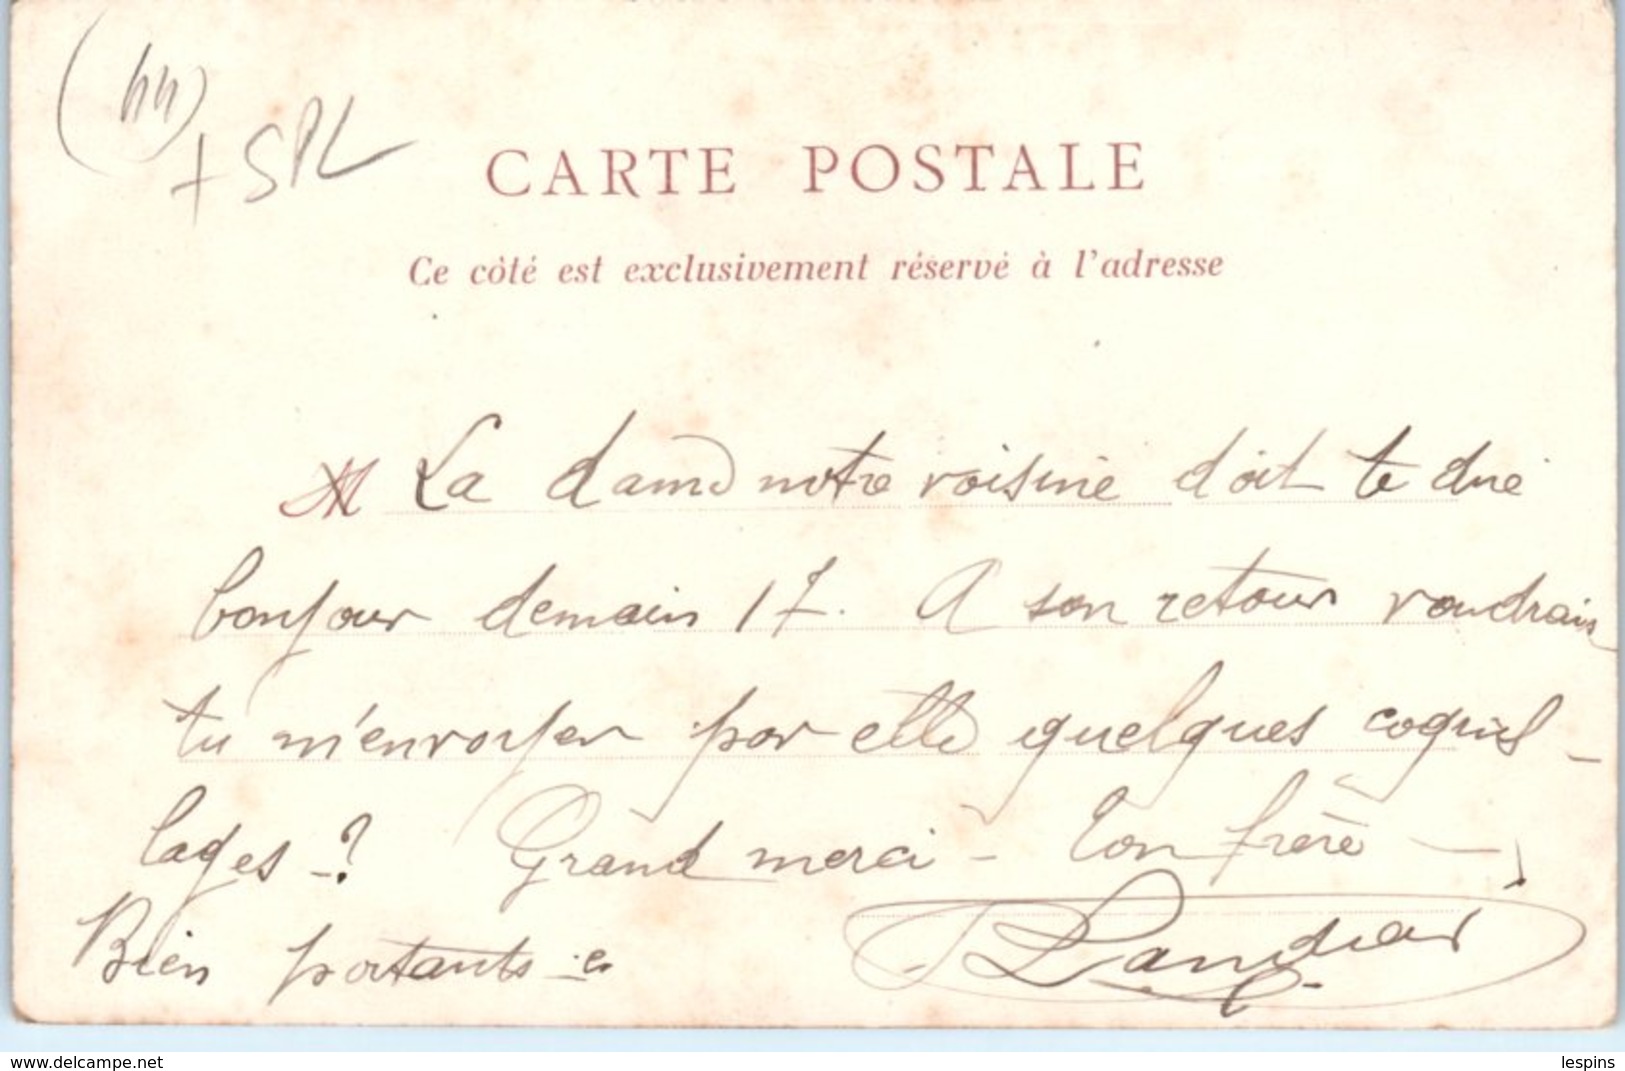 (44)
+ SPL
CARTE POSTALE
Ce côté est exclusivement réservé à l'adresse
La dame notre voisine doit te dire
bonjour demain 17. A son retour voudrais
tu m'envoyer par elle quelques coquil-
lages -? Grand merci - Ton frère -
Bien portants
www.delcampe.net
lespins